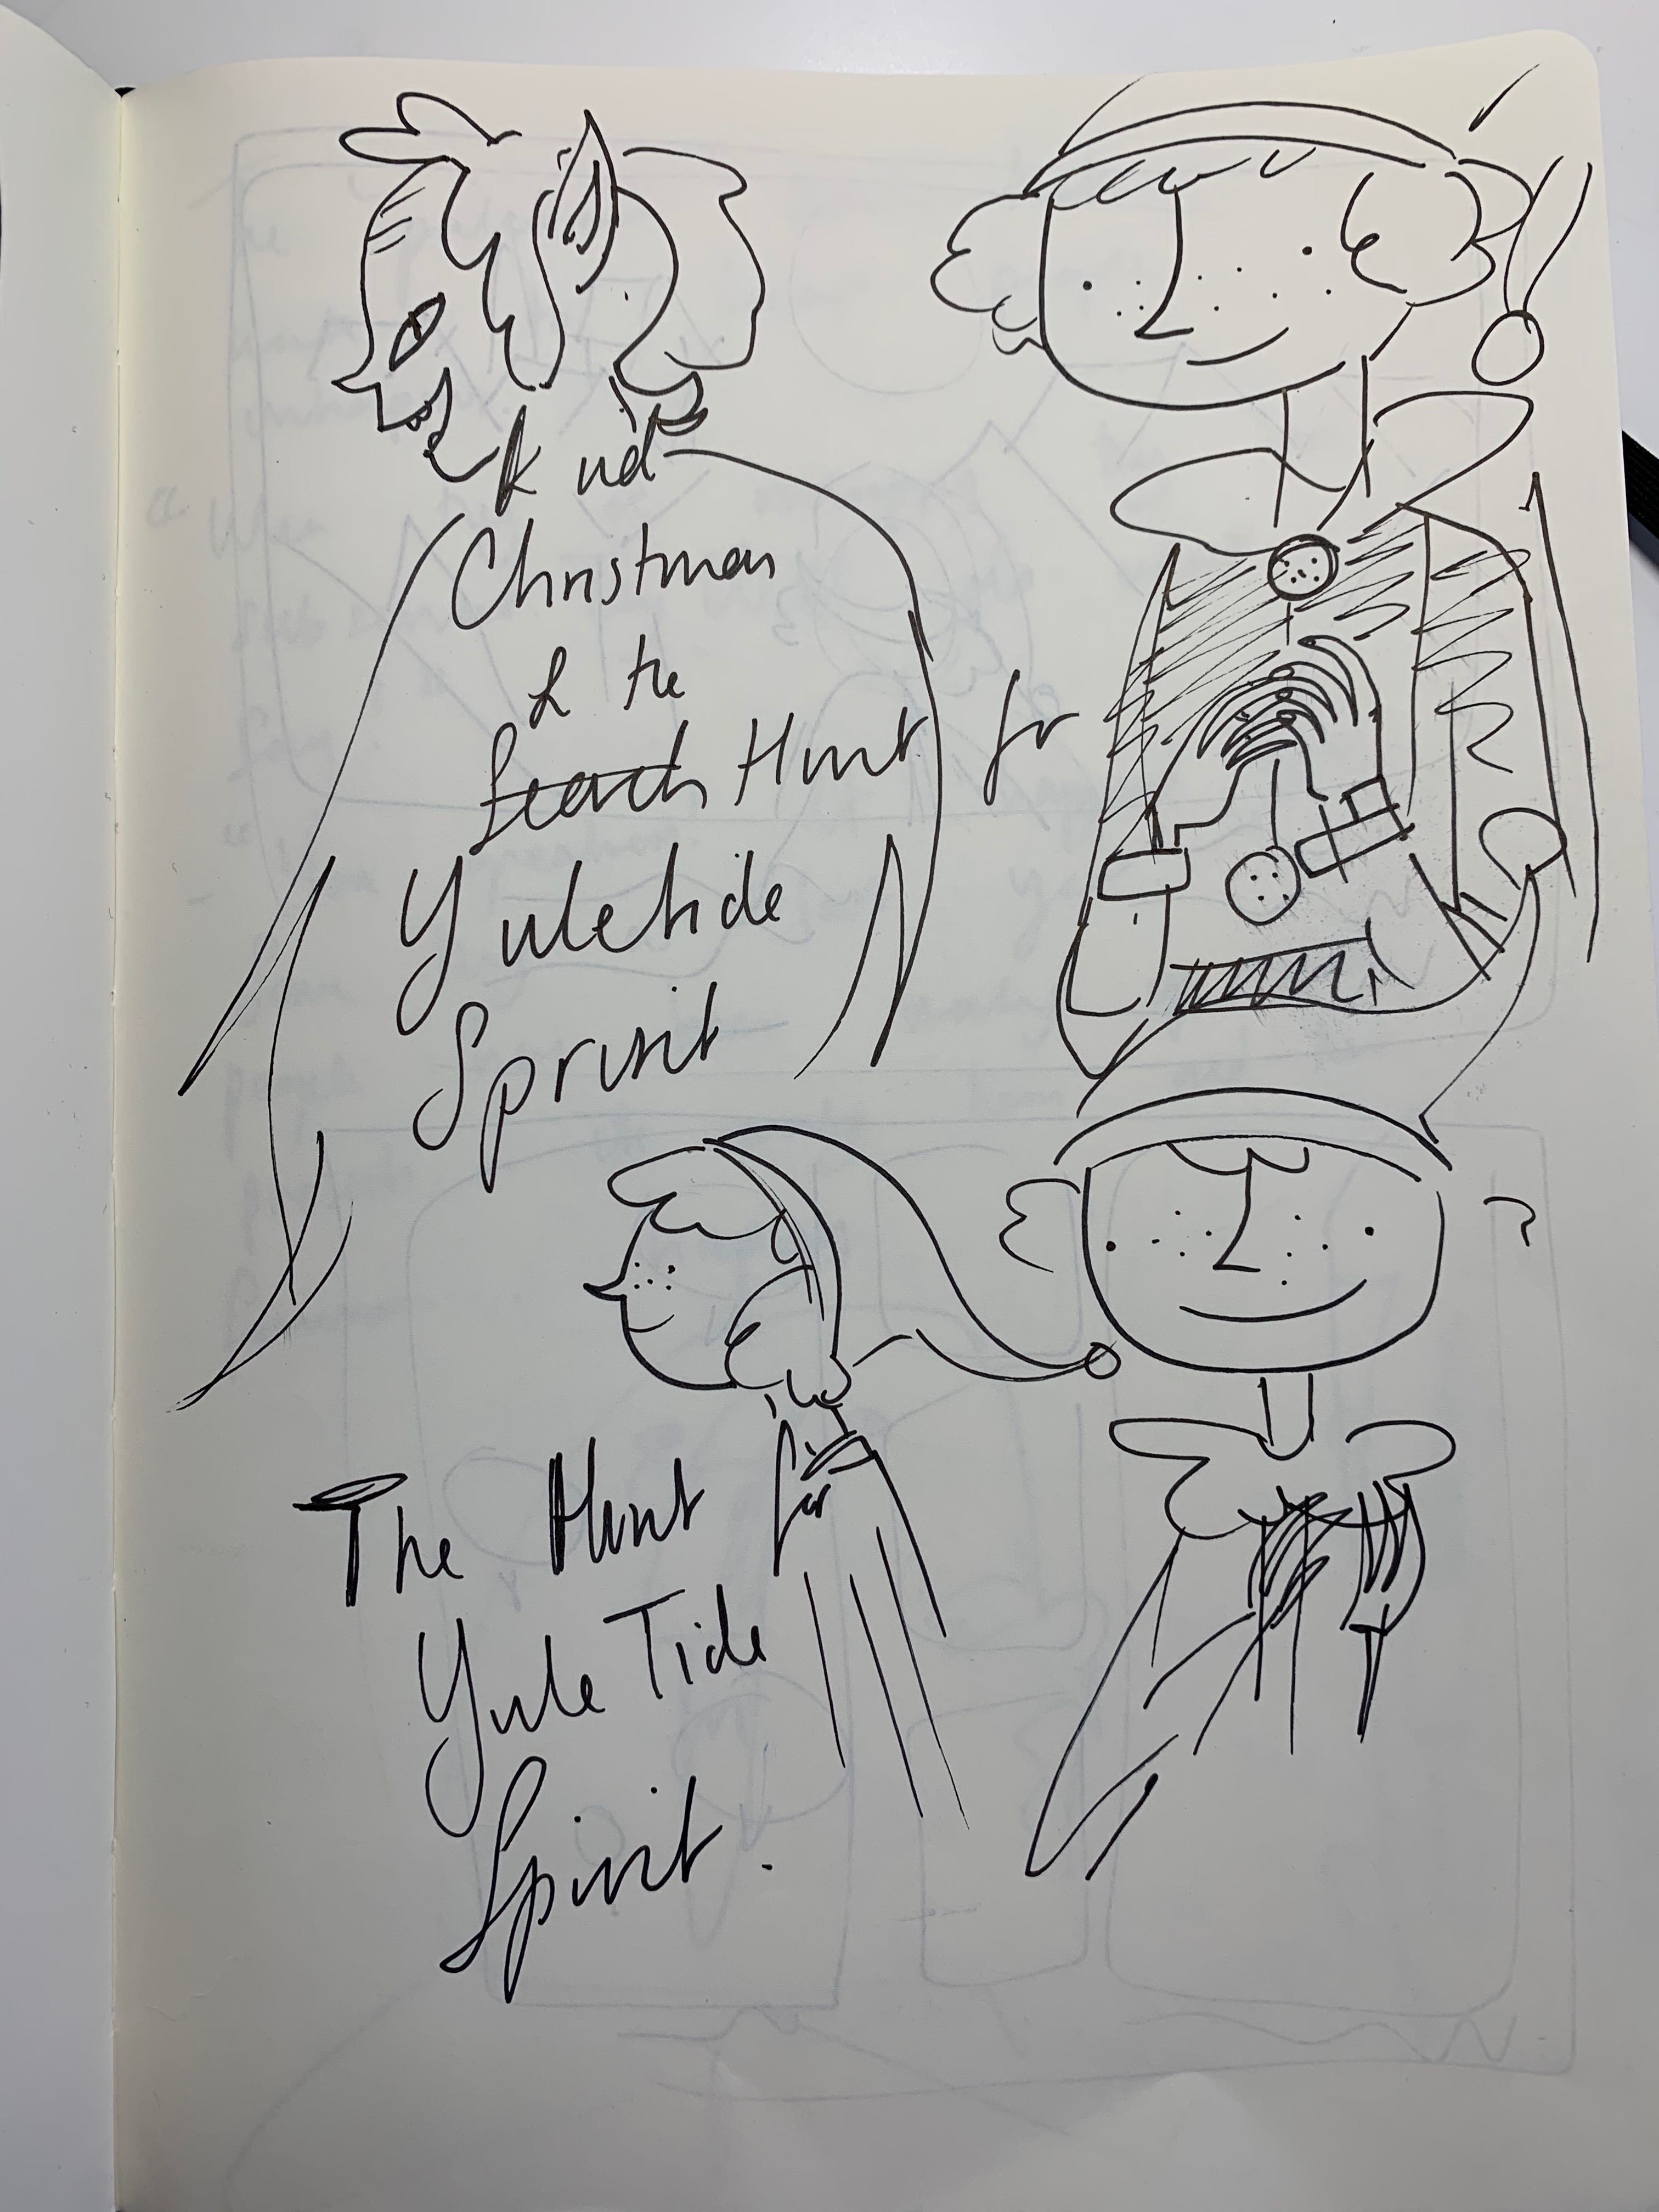 Christmas
& the
Search Hunt for
Yuletide
Spririt
The Hunt for
Yule Tide
Spirit.